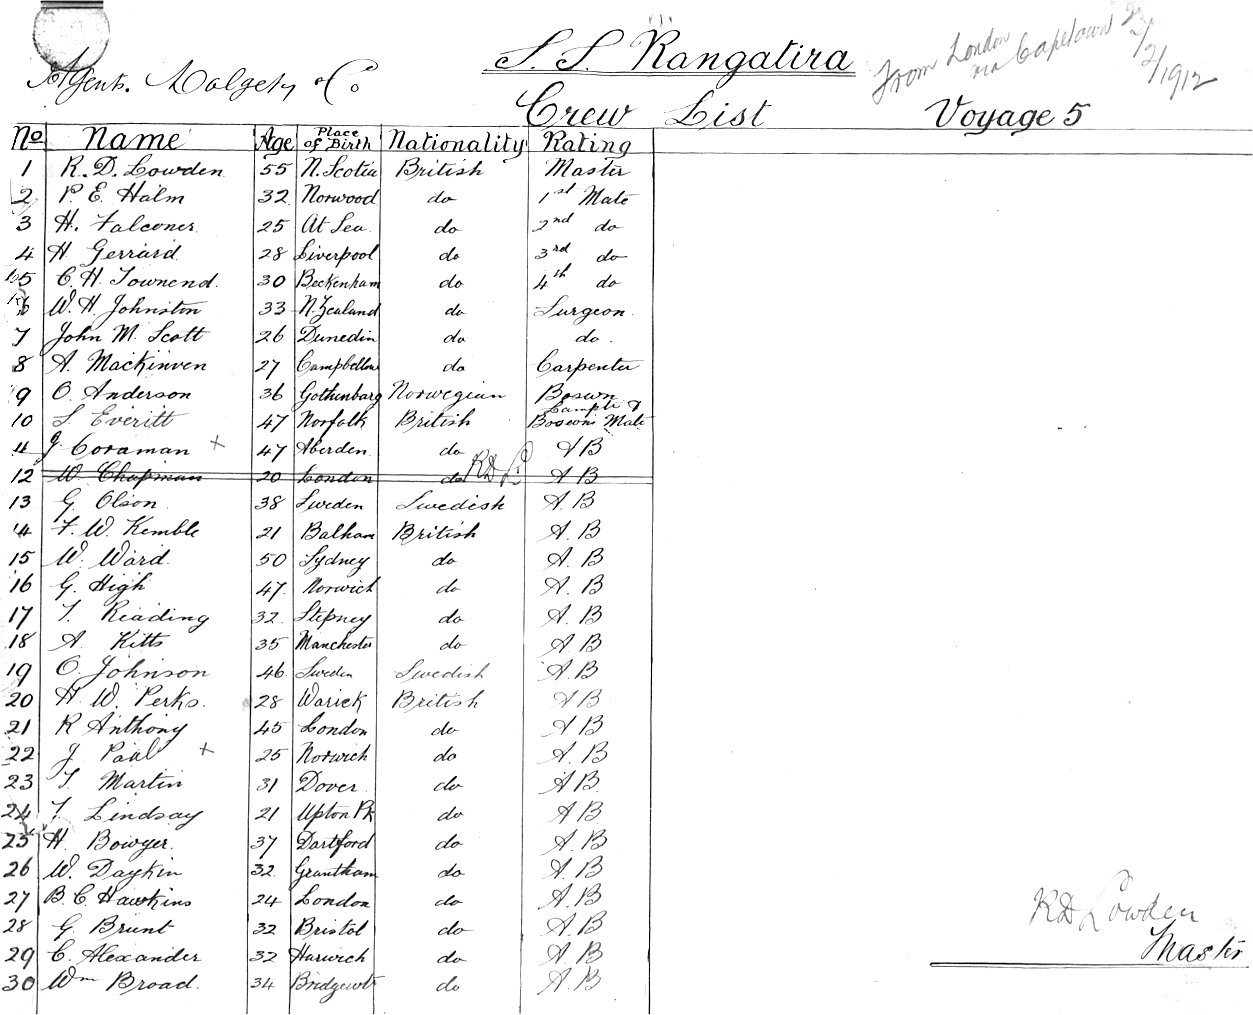 S. S. Rangatira
From London via Capetown 2/2/1912
Agents. Dalgety & Co
Crew List Voyage 5
No Name Age Place of Birth Nationality Rating
1 R. D. Lowden 55 N. Scotia British Master
2 P. E. Halm 32 Norwood do 1st Mate
3 H. Falconer 25 At Sea do 2nd do
4 H. Gerrard 28 Liverpool do 3rd do
5 C. H. Townend. 30 Beckenham do 4th do
6 W. H. Johnston 33 N. Zealand do Surgeon.
7 John M. Scott 26 Dunedin do do.
8 A. Mackinven 27 Campbellton do Carpenter
9 O. Anderson 36 Gothenbarg Norwegian Bosun
10 S. Everitt 47 Norfolk British Lamps & Bosun's Mate
11 J. Coraman + 47 Aberden do A B
12 W. Chapman 20 London do R D L A B
13 G. Olson 38 Sweden Swedish A. B
14 F. W. Kemble 21 Balham British A. B
15 W. Ward. 50 Sydney do A. B
16 G. High 47. Norwich do A. B
17 T. Reading 32. Stepney do A. B
18 A. Kitts 35 Manchester do A B
19 O. Johnson 46 Sweden Swedish A. B
20 H. W. Perks. 28 Warick British A B
21 R Anthony 45 London do A B
22 J Paul + 25 Norwich do A. B
23 T. Martin 31 Dover do A B.
24 T. Lindsay 21 Upton Pk do A B
25 H. Bowyer. 37 Dartford do A. B
26 W. Daykin 32. Grantham do A. B
27 B. C. Hawkins 24 London do A. B
28 G. Brunt 32 Bristol do A. B
29 C. Alexander 32 Harwich do A B
30 Wm Broad. 34 Bridgewtr do A. B
R D Lowden
Master